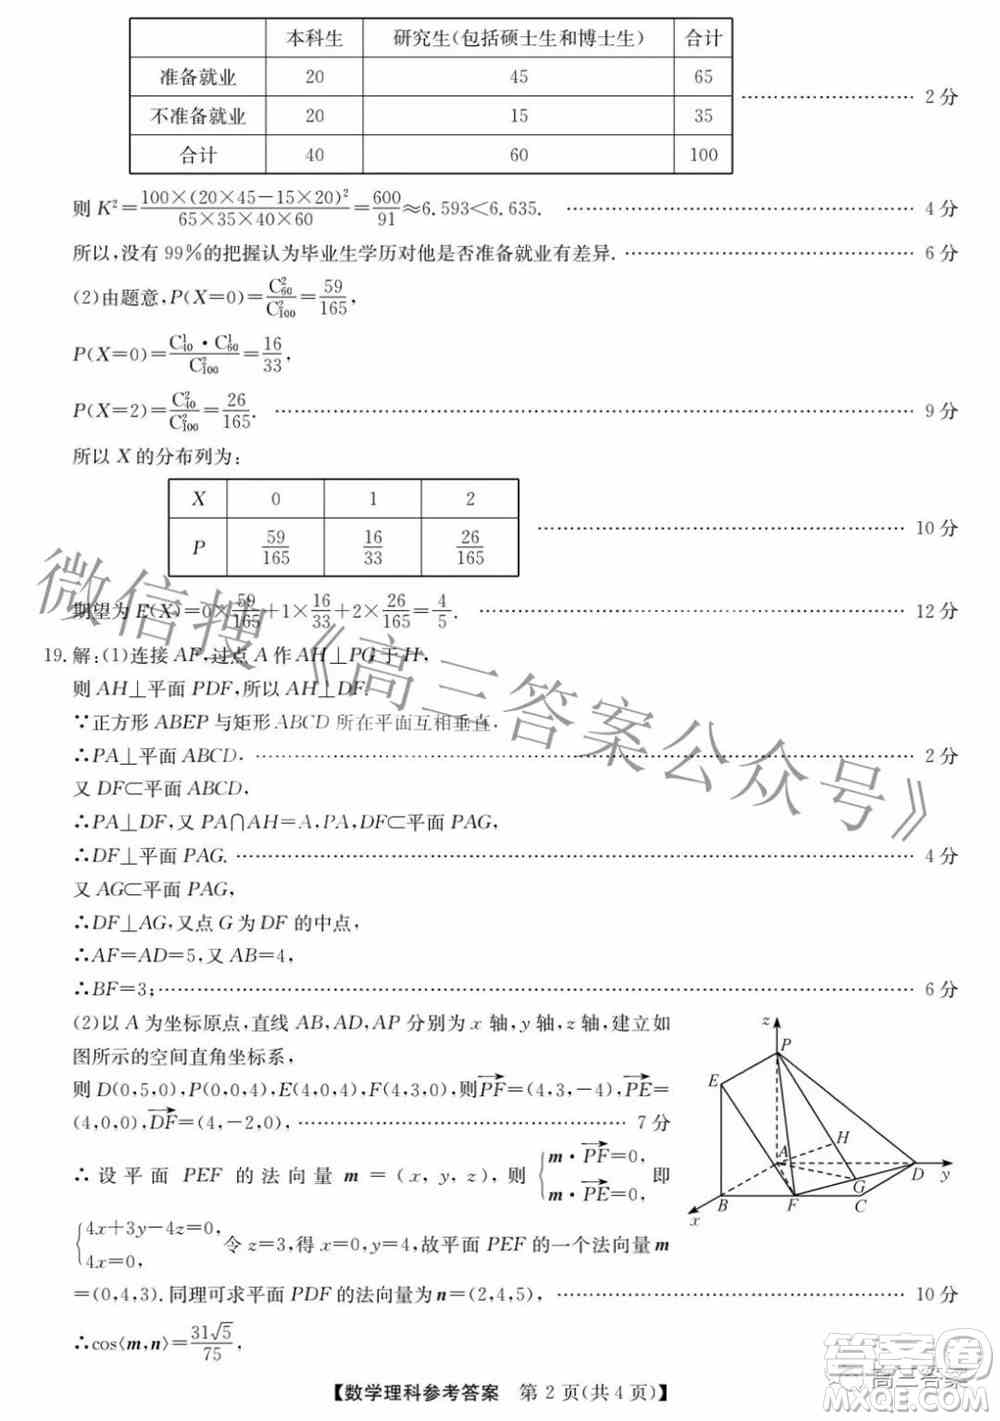 本科生 研究生(包括硕士生和博士生) 合计
准备就业 20 45 65
不准备就业 20 15 35
合计 40 60 100
………………………… 2 分
则 K²=100×(20×45−15×20)²/65×35×40×60=600/91≈6.593<6.635. ………………………… 4 分
所以,没有 99%的把握认为毕业生学历对他是否准备就业有差异. ………………………… 6 分
(2)由题意,P(X=0)=C²₆₀/C²₁₀₀=59/165,
P(X=0)=C¹₄₀·C¹₆₀/C²₁₀₀=16/33,
P(X=2)=C²₄₀/C²₁₀₀=26/165. ………………………… 9 分
所以 X 的分布列为:
X 0 1 2
P 59/165 16/33 26/165
………………………… 10 分
期望为 E(X)=0×59/165+1×16/33+2×26/165=4/5. ………………………… 12 分
19.解:(1)连接 AF,过点 A 作 AH⊥PG 于 H,
则 AH⊥平面 PDF,所以 AH⊥DF.
∵正方形 ABEP 与矩形 ABCD 所在平面互相垂直,
∴PA⊥平面 ABCD, ………………………… 2 分
又 DF⊂平面 ABCD,
∴PA⊥DF,又 PA∩AH=A,PA,DF⊂平面 PAG,
∴DF⊥平面 PAG. ………………………… 4 分
又 AG⊂平面 PAG,
∴DF⊥AG,又点 G 为 DF 的中点,
∴AF=AD=5,又 AB=4,
∴BF=3; ………………………… 6 分
(2)以 A 为坐标原点,直线 AB,AD,AP 分别为 x 轴,y 轴,z 轴,建立如
图所示的空间直角坐标系,
则 D(0,5,0),P(0,0,4),E(4,0,4),F(4,3,0),则PF→=(4,3,−4),PE→=
(4,0,0),DF→=(4,−2,0), ………………………… 7 分
∴设平面 PEF 的法向量 m=(x,y,z),则 {m·PF→=0, m·PE→=0, 即
{4x+3y−4z=0, 4x=0, 令 z=3,得 x=0,y=4,故平面 PEF 的一个法向量 m
=(0,4,3).同理可求平面 PDF 的法向量为 n=(2,4,5), ………………………… 10 分
∴cos⟨m,n⟩=31√5/75,
z
P
E
H
A
D
y
G
B
F
C
x
【数学理科参考答案 第 2 页(共 4 页)】
微信搜《高三答案公众号》
高三答案
答案圈